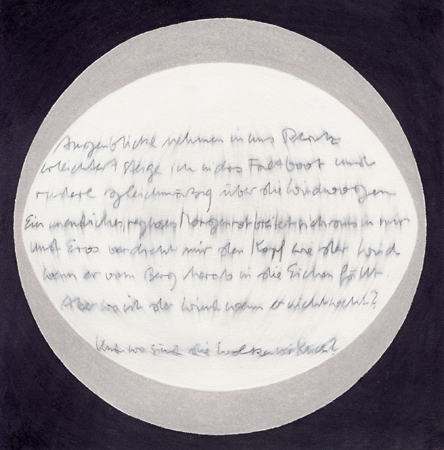 Augenblicke nehmen in uns Besitz
erleichtert steige ich in das Faltboot und
rudere gleichmäßig über die Windwoogen
Ein unendliches Morgenrot breitet sich aus in mir
und Eros verdreht mir den Kopf wie der Wind
wenn er vom Berg herab in die Eichen fällt.
Aber wo ist der Wind wenn er nicht weht?
Und wo sind die